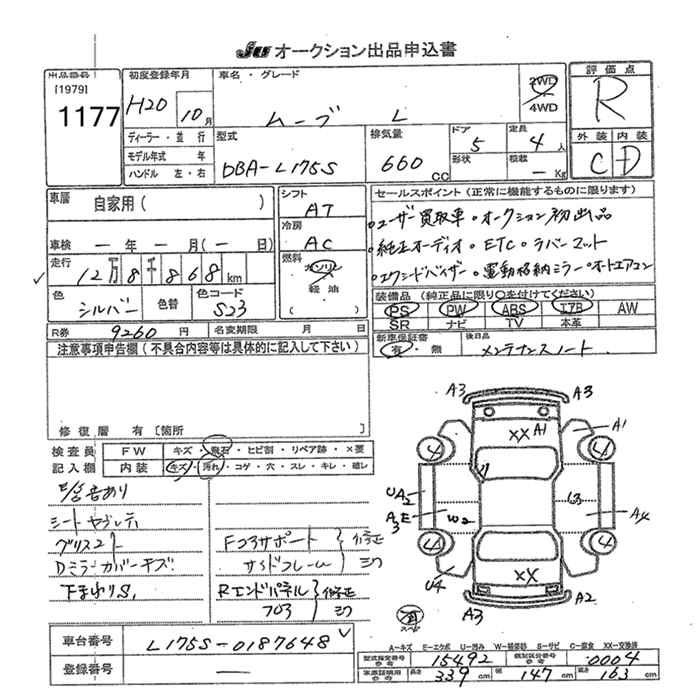 JU オークション出品申込書
出品番号 初度登録年月 車名・グレード 2WD 評価点
[1979] 4WD
1177 H20 10月 ムーブ L R
ディーラー・並行 型式 排気量 ドア 定員 外装 内装
モデル年式 年 5 4人
ハンドル 左・右 DBA-L175S 660cc 形状 積載 -Kg C D
車歴 自家用( ) シフト AT セールスポイント(正常に機能するものに限ります)
・ユーザー買取車・オークション初出品
冷房 AC ・純正オーディオ・ETC・ラバーマット
車検 ー年ー月(ー日) ・電動格納ミラー・オートエアコン
走行 12万8千868km 燃料 ガソリン
軽油
( )
色 シルバー 色替 色コード S23 装備品(純正品に限り○を付けてください)
PS PW ABS エアB AW
SR ナビ TV 本革
R券 9260円 名変期限 月 日 新車保証書 後日品
有・無 メンテナンスノート
注意事項申告欄(不具合内容等は具体的に記入して下さい)
修復歴 有[箇所
検査員 FW キズ・飛石・ヒビ割・リペア跡・×要
記入欄 内装 キズ・汚れ・コゲ・穴・スレ・キレ・破レ
シートヤブレ
Dミラーカバーキズ 下まわりS,
Fコアサポート 修正
サイドフレーム
Rエンドパネル 修正
フロア
A3 A3
XX A1 A1
4 4
UA2
A3 E W2 A4
4 4
U4 XX
A3 A2
車台番号 L175S-0187648
登録番号 ー
A-キズ E-エクボ U-凹み W-補修跡 S-サビ C-腐食 XX-交換済
型式指定番号 15492 類別区分番号 0004
長さ 339cm 幅 147cm 高さ 163cm